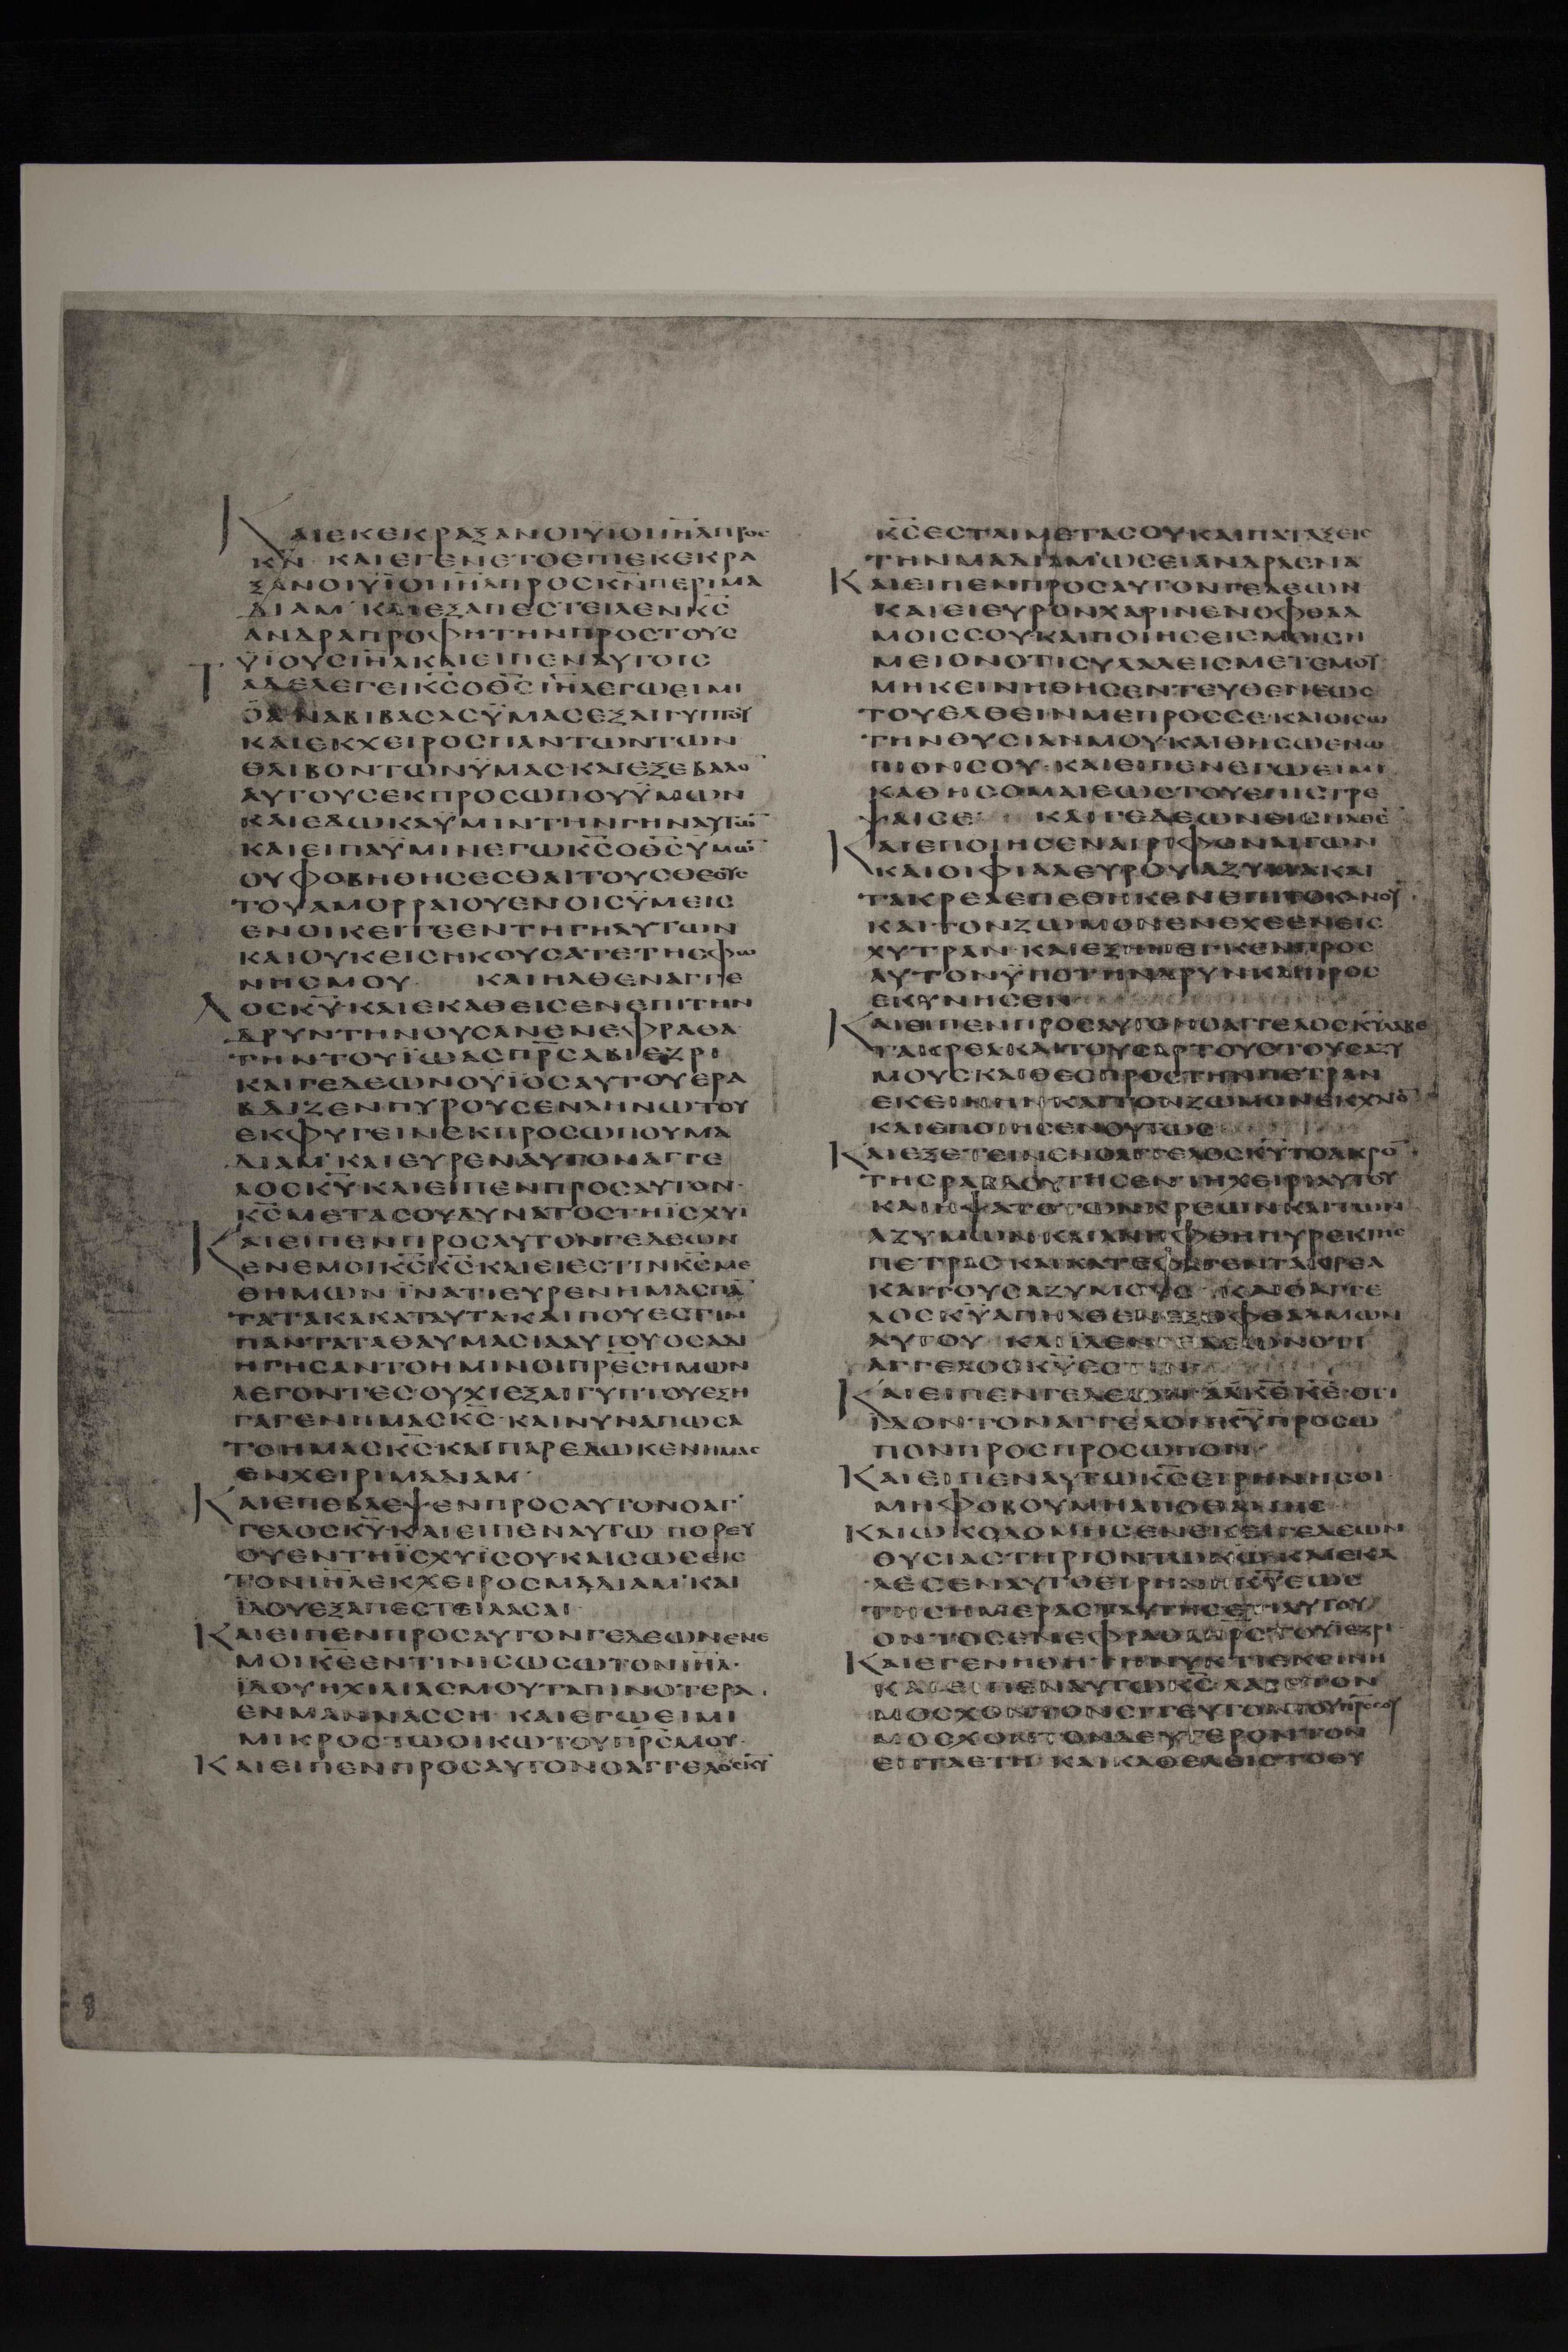 ΚΑΙΕΚΕΚΡΑΞΑΝΟΙΥΙΟΙΙΗΛΠΡΟΣ
ΚΝ ΚΑΙΕΓΕΝΕΤΟΕΠΙΕΚΕΚΡΑ
ΞΑΝΟΙΥΙΟΙΙΗΛΠΡΟΣΚΝΠΕΡΙΜΑ
ΔΙΑΜ ΚΑΙΕΞΑΠΕΣΤΕΙΛΕΝΚΣ
ΑΝΔΡΑΠΡΟΦΗΤΗΝΠΡΟΣΤΟΥΣ
ΥΙΟΥΣΙΗΛΚΑΙΕΙΠΕΝΑΥΤΟΙΣ
ΤΑΔΕΛΕΓΕΙΚΣΟΘΣΙΗΛΕΓΩΕΙΜΙ
ΟΑΝΑΒΙΒΑΣΑΣΥΜΑΣΕΞΑΙΓΥΠΤΟΥ
ΚΑΙΕΚΧΕΙΡΟΣΠΑΝΤΩΝΤΩΝ
ΘΛΙΒΟΝΤΩΝΥΜΑΣΚΑΙΕΞΕΒΑΛΟ
ΑΥΤΟΥΣΕΚΠΡΟΣΩΠΟΥΥΜΩΝ
ΚΑΙΕΔΩΚΑΥΜΙΝΤΗΝΓΗΝΑΥΤΩ
ΚΑΙΕΙΠΑΥΜΙΝΕΓΩΚΣΟΘΣΥΜΩ
ΟΥΦΟΒΗΘΗΣΕΣΘΑΙΤΟΥΣΘΕΟΥΣ
ΤΟΥΑΜΟΡΡΑΙΟΥΕΝΟΙΣΥΜΕΙΣ
ΕΝΟΙΚΕΙΤΕΕΝΤΗΓΗΑΥΤΩΝ
ΚΑΙΟΥΚΕΙΣΗΚΟΥΣΑΤΕΤΗΣΦΩ
ΝΗΣΜΟΥ ΚΑΙΗΛΘΕΝΑΓΓΕ
ΛΟΣΚΥΚΑΙΕΚΑΘΕΙΣΕΝΕΠΙΤΗΝ
ΔΡΥΝΤΗΝΟΥΣΑΝΕΝΕΦΡΑΘΑ
ΤΗΝΤΟΥΙΩΑΣΠΡΣΑΒΙΕΖΡΙ
ΚΑΙΓΕΔΕΩΝΟΥΙΟΣΑΥΤΟΥΕΡΑ
ΒΔΙΖΕΝΠΥΡΟΥΣΕΝΛΗΝΩΤΟΥ
ΕΚΦΥΓΕΙΝΕΚΠΡΟΣΩΠΟΥΜΑ
ΔΙΑΜ ΚΑΙΕΥΡΕΝΑΥΤΟΝΑΓΓΕ
ΛΟΣΚΥΚΑΙΕΙΠΕΝΠΡΟΣΑΥΤΟΝ·
ΚΣΜΕΤΑΣΟΥΔΥΝΑΤΟΣΤΗΙΣΧΥΙ
ΚΑΙΕΙΠΕΝΠΡΟΣΑΥΤΟΝΓΕΔΕΩΝ
ΕΝΕΜΟΙΚΣΚΣΚΑΙΕΙΕΣΤΙΝΚΣΜΕ
ΘΗΜΩΝ ΙΝΑΤΙΕΥΡΕΝΗΜΑΣΠΑ
ΤΑΤΑΚΑΚΑΤΑΥΤΑΚΑΙΠΟΥΕΣΤΙΝ
ΠΑΝΤΑΤΑΘΑΥΜΑΣΙΑΑΥΤΟΥΟΣΑΔΙ
ΗΓΗΣΑΝΤΟΗΜΙΝΟΙΠΡΕΣΗΜΩΝ
ΛΕΓΟΝΤΕΣΟΥΧΙΕΞΑΙΓΥΠΤΟΥΕΞΗ
ΓΑΓΕΝΗΜΑΣΚΣ ΚΑΙΝΥΝΑΠΩΣΑ
ΤΟΗΜΑΣΚΣΚΑΙΠΑΡΕΔΩΚΕΝΗΜΑΣ
ΕΝΧΕΙΡΙΜΑΔΙΑΜ·
ΚΑΙΕΠΕΒΛΕΨΕΝΠΡΟΣΑΥΤΟΝΟΑΓ
ΓΕΛΟΣΚΥΚΑΙΕΙΠΕΝΑΥΤΩ ΠΟΡΕΥ
ΟΥΕΝΤΗΙΣΧΥΙΣΟΥΚΑΙΣΩΣΕΙΣ
ΤΟΝΙΗΛΕΚΧΕΙΡΟΣΜΑΔΙΑΜ ΚΑΙ
ΙΔΟΥΕΞΑΠΕΣΤΕΙΛΑΣΑΙ
ΚΑΙΕΙΠΕΝΠΡΟΣΑΥΤΟΝΓΕΔΕΩΝΕΝΕ
ΜΟΙΚΕΕΝΤΙΝΙΣΩΣΩΤΟΝΙΗΛ·
ΙΔΟΥΗΧΙΛΙΑΣΜΟΥΤΑΠΙΝΟΤΕΡΑ
ΕΝΜΑΝΝΑΣΣΗ ΚΑΙΕΓΩΕΙΜΙ
ΜΙΚΡΟΣΤΩΟΙΚΩΤΟΥΠΡΣΜΟΥ·
ΚΑΙΕΙΠΕΝΠΡΟΣΑΥΤΟΝΟΑΓΓΕΛΟΣΚΥ
ΚΣΕΣΤΑΙΜΕΤΑΣΟΥΚΑΙΠΑΤΑΞΕΙΣ
ΤΗΝΜΑΔΙΑΜΩΣΕΙΑΝΔΡΑΕΝΑ
ΚΑΙΕΙΠΕΝΠΡΟΣΑΥΤΟΝΓΕΔΕΩΝ
ΚΑΙΕΙΕΥΡΟΝΧΑΡΙΝΕΝΟΦΘΑΛ
ΜΟΙΣΣΟΥΚΑΙΠΟΙΗΣΕΙΣΜΟΙΣΗ
ΜΕΙΟΝΟΤΙΣΥΛΑΛΕΙΣΜΕΤΕΜΟΥ
ΜΗΚΕΙΝΗΘΗΣΕΝΤΕΥΘΕΝΕΩΣ
ΤΟΥΕΛΘΕΙΝΜΕΠΡΟΣΣΕ ΚΑΙΟΙΣΩ
ΤΗΝΘΥΣΙΑΝΜΟΥΚΑΙΘΗΣΩΕΝΩ
ΠΙΟΝΣΟΥ·ΚΑΙΕΙΠΕΝΕΓΩΕΙΜΙ
ΚΑΘΗΣΟΜΑΙΕΩΣΤΟΥΕΠΙΣΤΡΕ
ΨΑΙΣΕ ΚΑΙΓΕΔΕΩΝΕΙΣΗΛΘΕ
ΚΑΙΕΠΟΙΗΣΕΝΑΙΡΙΦΟΝΑΙΓΩΝ
ΚΑΙΟΙΦΙΑΛΕΥΡΟΥΑΖΥΜΑΚΑΙ
ΤΑΚΡΕΑΕΠΕΘΗΚΕΝΕΠΙΤΟΚΑΝΟΥ
ΚΑΙΤΟΝΖΩΜΟΝΕΝΕΧΕΕΝΕΙΣ
ΧΥΤΡΑΝ ΚΑΙΕΞΗΝΕΓΚΕΝΠΡΟΣ
ΑΥΤΟΝΥΠΟΤΗΝΔΡΥΝΚΑΙΠΡΟΣ
ΕΚΥΝΗΣΕΝ
ΚΑΙΕΙΠΕΝΠΡΟΣΑΥΤΟΝΟΑΓΓΕΛΟΣΚΥΛΑΒΕ
ΤΑΚΡΕΑΚΑΙΤΟΥΣΑΡΤΟΥΣΤΟΥΣΑΖΥ
ΜΟΥΣΚΑΙΘΕΣΠΡΟΣΤΗΝΠΕΤΡΑΝ
ΕΚΕΙΝΗΝΚΑΙΤΟΝΖΩΜΟΝΕΚΧΕΟ
ΚΑΙΕΠΟΙΗΣΕΝΟΥΤΩΣ
ΚΑΙΕΞΕΤΕΙΝΕΝΟΑΓΓΕΛΟΣΚΥΤΟΑΚΡΟ
ΤΗΣΡΑΒΔΟΥΤΗΣΕΝΤΗΧΕΙΡΙΑΥΤΟΥ
ΚΑΙΗΨΑΤΟΤΩΝΚΡΕΩΝΚΑΙΤΩΝ
ΑΖΥΜΩΝΚΑΙΑΝΗΦΘΗΠΥΡΕΚΤΗΣ
ΠΕΤΡΑΣΚΑΙΚΑΤΕΦΑΓΕΝΤΑΚΡΕΑ
ΚΑΙΤΟΥΣΑΖΥΜΟΥΣ ΚΑΙΟΑΓΓΕ
ΛΟΣΚΥΑΠΗΛΘΕΝΕΞΟΦΘΑΛΜΩΝ
ΑΥΤΟΥ ΚΑΙΙΔΕΝΓΕΔΕΩΝΟΤΙ
ΑΓΓΕΛΟΣΚΥΕΣΤΙΝ
ΚΑΙΕΙΠΕΝΓΕΔΕΩΝ ΚΕΚΕ ΟΤΙ
ΙΔΟΝΤΟΝΑΓΓΕΛΟΝΚΥΠΡΟΣΩ
ΠΟΝΠΡΟΣΠΡΟΣΩΠΟΝ
ΚΑΙΕΙΠΕΝΑΥΤΩΚΣΕΙΡΗΝΗΣΟΙ
ΜΗΦΟΒΟΥΜΗΑΠΟΘΑΝΗΣ
ΚΑΙΩΚΟΔΟΜΗΣΕΝΕΚΕΙΓΕΔΕΩΝ
ΘΥΣΙΑΣΤΗΡΙΟΝΤΩΚΩΚΑΙΕΚΑ
ΛΕΣΕΝΑΥΤΟΕΙΡΗΝΗΚΥΕΩΣ
ΤΗΣΗΜΕΡΑΣΤΑΥΤΗΣΕΤΙΑΥΤΟΥ
ΟΝΤΟΣΕΝΕΦΡΑΘΑΠΡΣΤΟΥΙΕΖΡΙ
ΚΑΙΕΓΕΝΗΘΗΤΗΝΥΚΤΙΕΚΕΙΝΗ
ΚΑΙΕΙΠΕΝΑΥΤΩΚΣΛΑΒΕΤΟΝ
ΜΟΣΧΟΝΤΟΝΣΙΤΕΥΤΟΝΤΟΥΠΡΣΣΟΥ
ΜΟΣΧΟΝΤΟΝΔΕΥΤΕΡΟΝΤΟΝ
ΕΠΤΑΕΤΗ ΚΑΙΚΑΘΕΛΕΙΣΤΟΘΥ